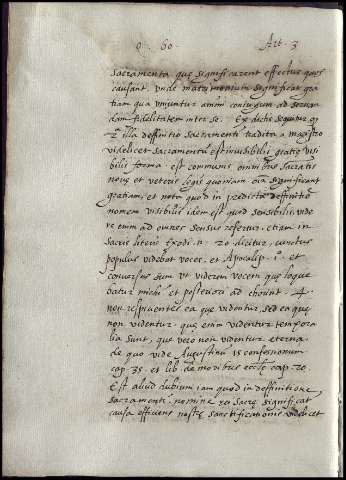 q. 60. Art. 3
Sacramenta que significarent effectus quos
causant, unde matrimonium significat gra
tiam qua uniuntur animi coniugum ad servan
dam fidelitatem inter se. Ex dictis sequitur q
illa deffinitio sacramenti tradita a magistro
videlicet sacramentum est invisibilis gratie visi
bilis forma. est communis omnibus sacratis
nove et veteris legis quoniam oia significant
gratiam, et nota quod in predicta deffinitione
nomen visibilis idem est quod sensibilis, vide
re enim ad omnes sensus refertur. etiam in
sacris literis Exodi. n. 20 dicitur, cunctus
populus videbat voces, et Apocalip. 1. et
conversus sum ut viderem vocem que loque
batur michi et posteriori ad chorint. 4.
non respicientes ea que videntur sed ea que
non videntur. que enim videntur tempora
lia sunt, que vero non videntur eterna.
de quo vide Augustinum confessionum
cap. 35. et lib. de moribus eccle. cap. 20.
Est aliud dubium iam quod in deffinitione
sacramenti nomine rei sacre significat
causa efficiens nostre sanctificationis videlicet